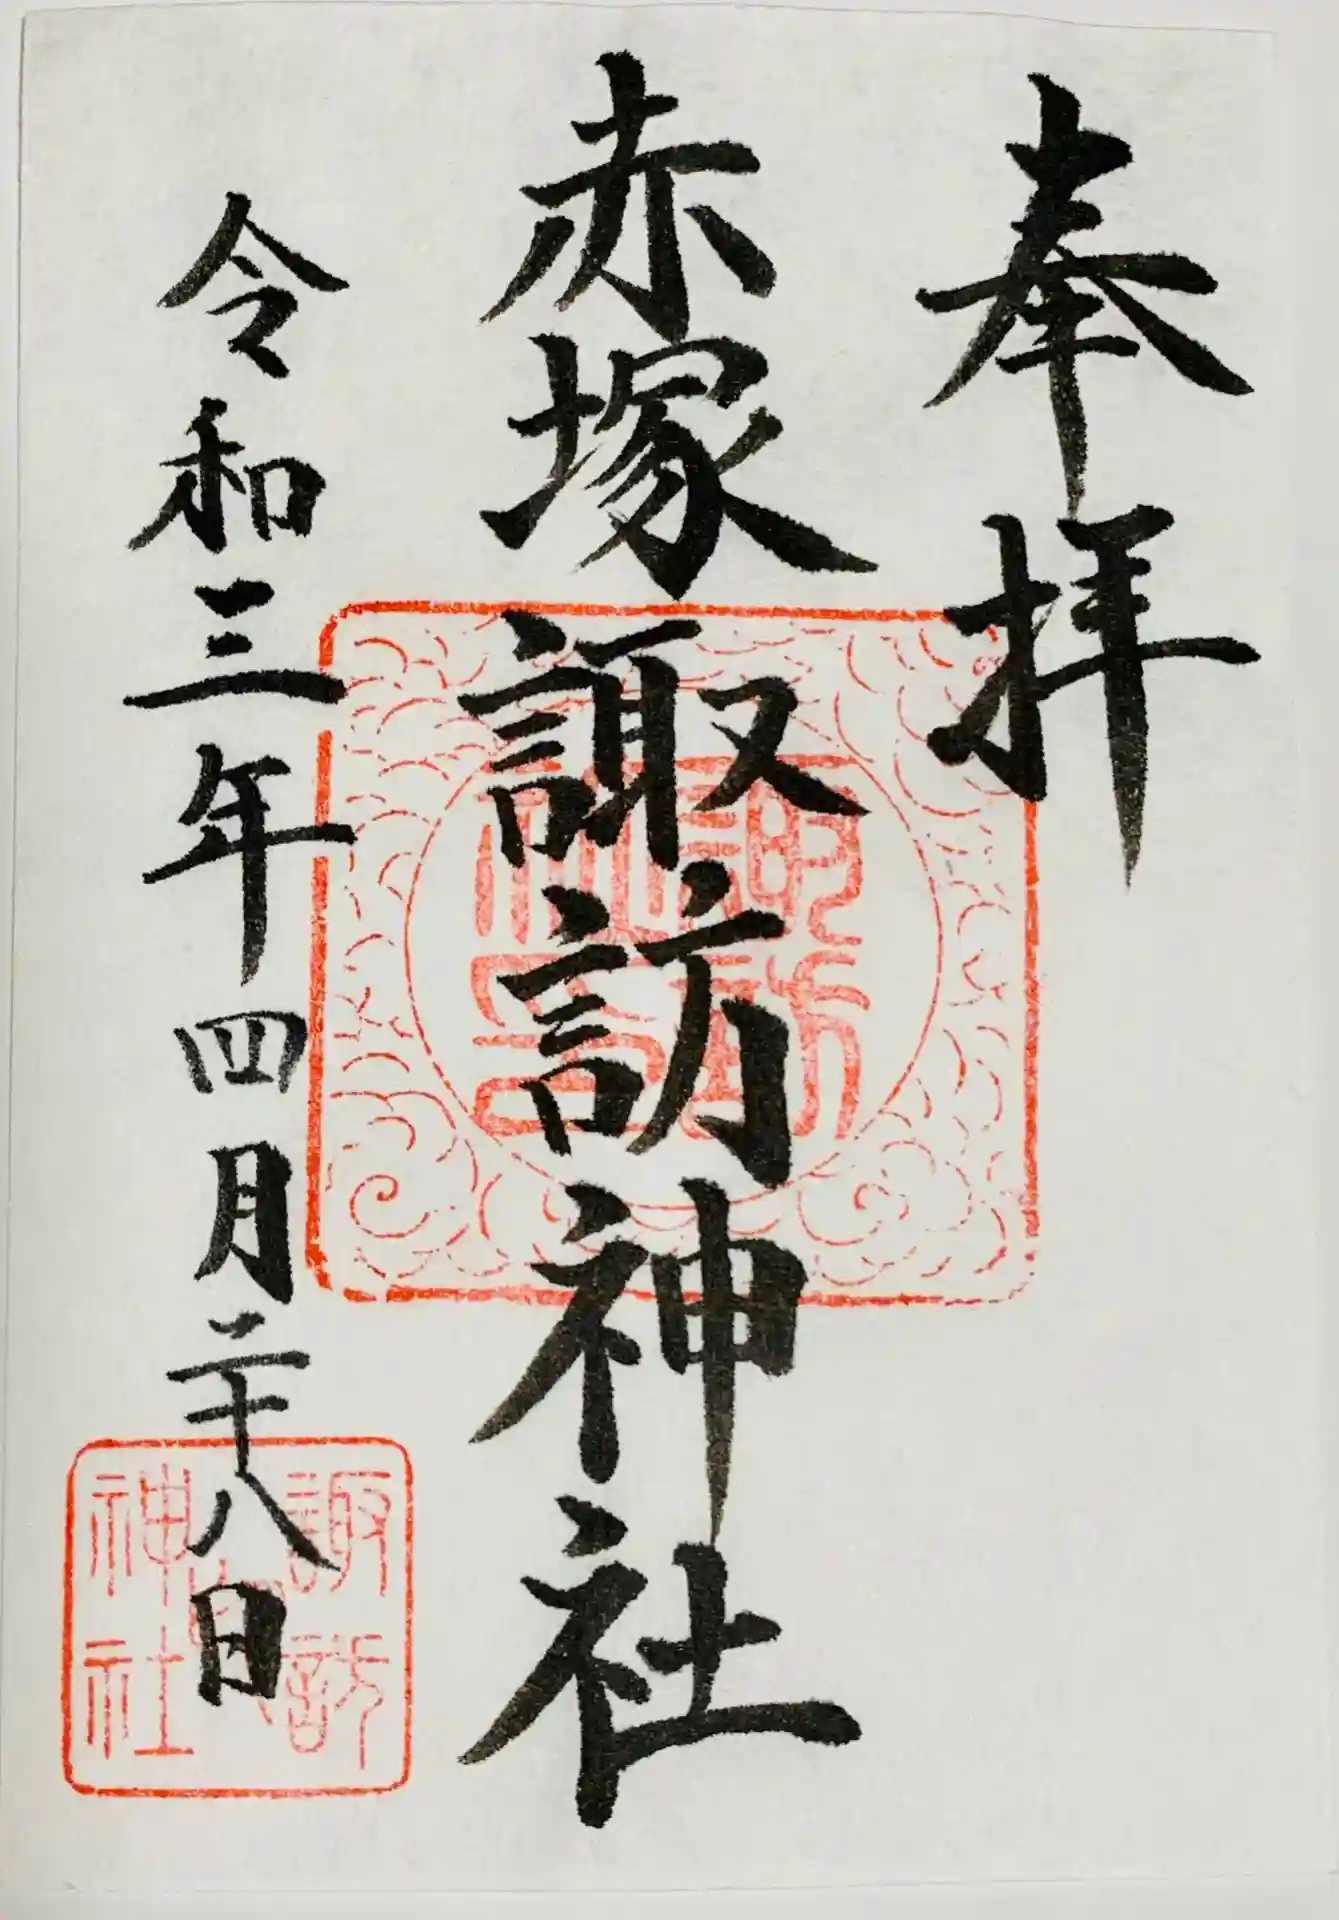 奉拝
赤塚諏訪神社
令和三年四月二十八日
諏訪
神社